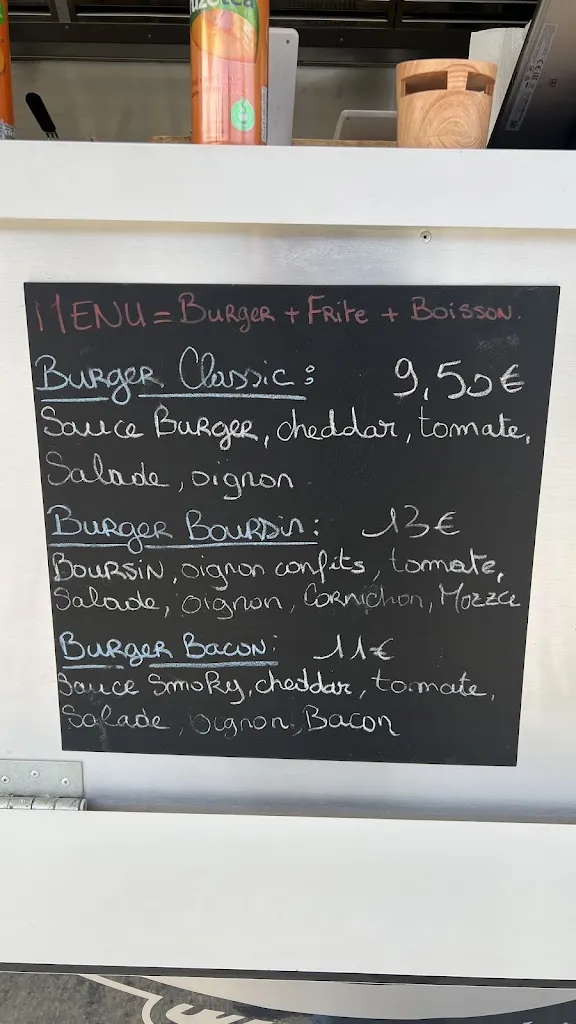 MENU = BURGER + FRITE + BOISSON.
BURGER Classic : 9,50€
Sauce BURGER, cheddar, tomate,
Salade, oignon
BURGER BOURSIN : 13€
BOURSIN, oignon confits, tomate,
Salade, oignon, Cornichon, Mozza
BURGER BACON : 11€
Sauce Smoky, cheddar, tomate,
Salade, oignon, Bacon